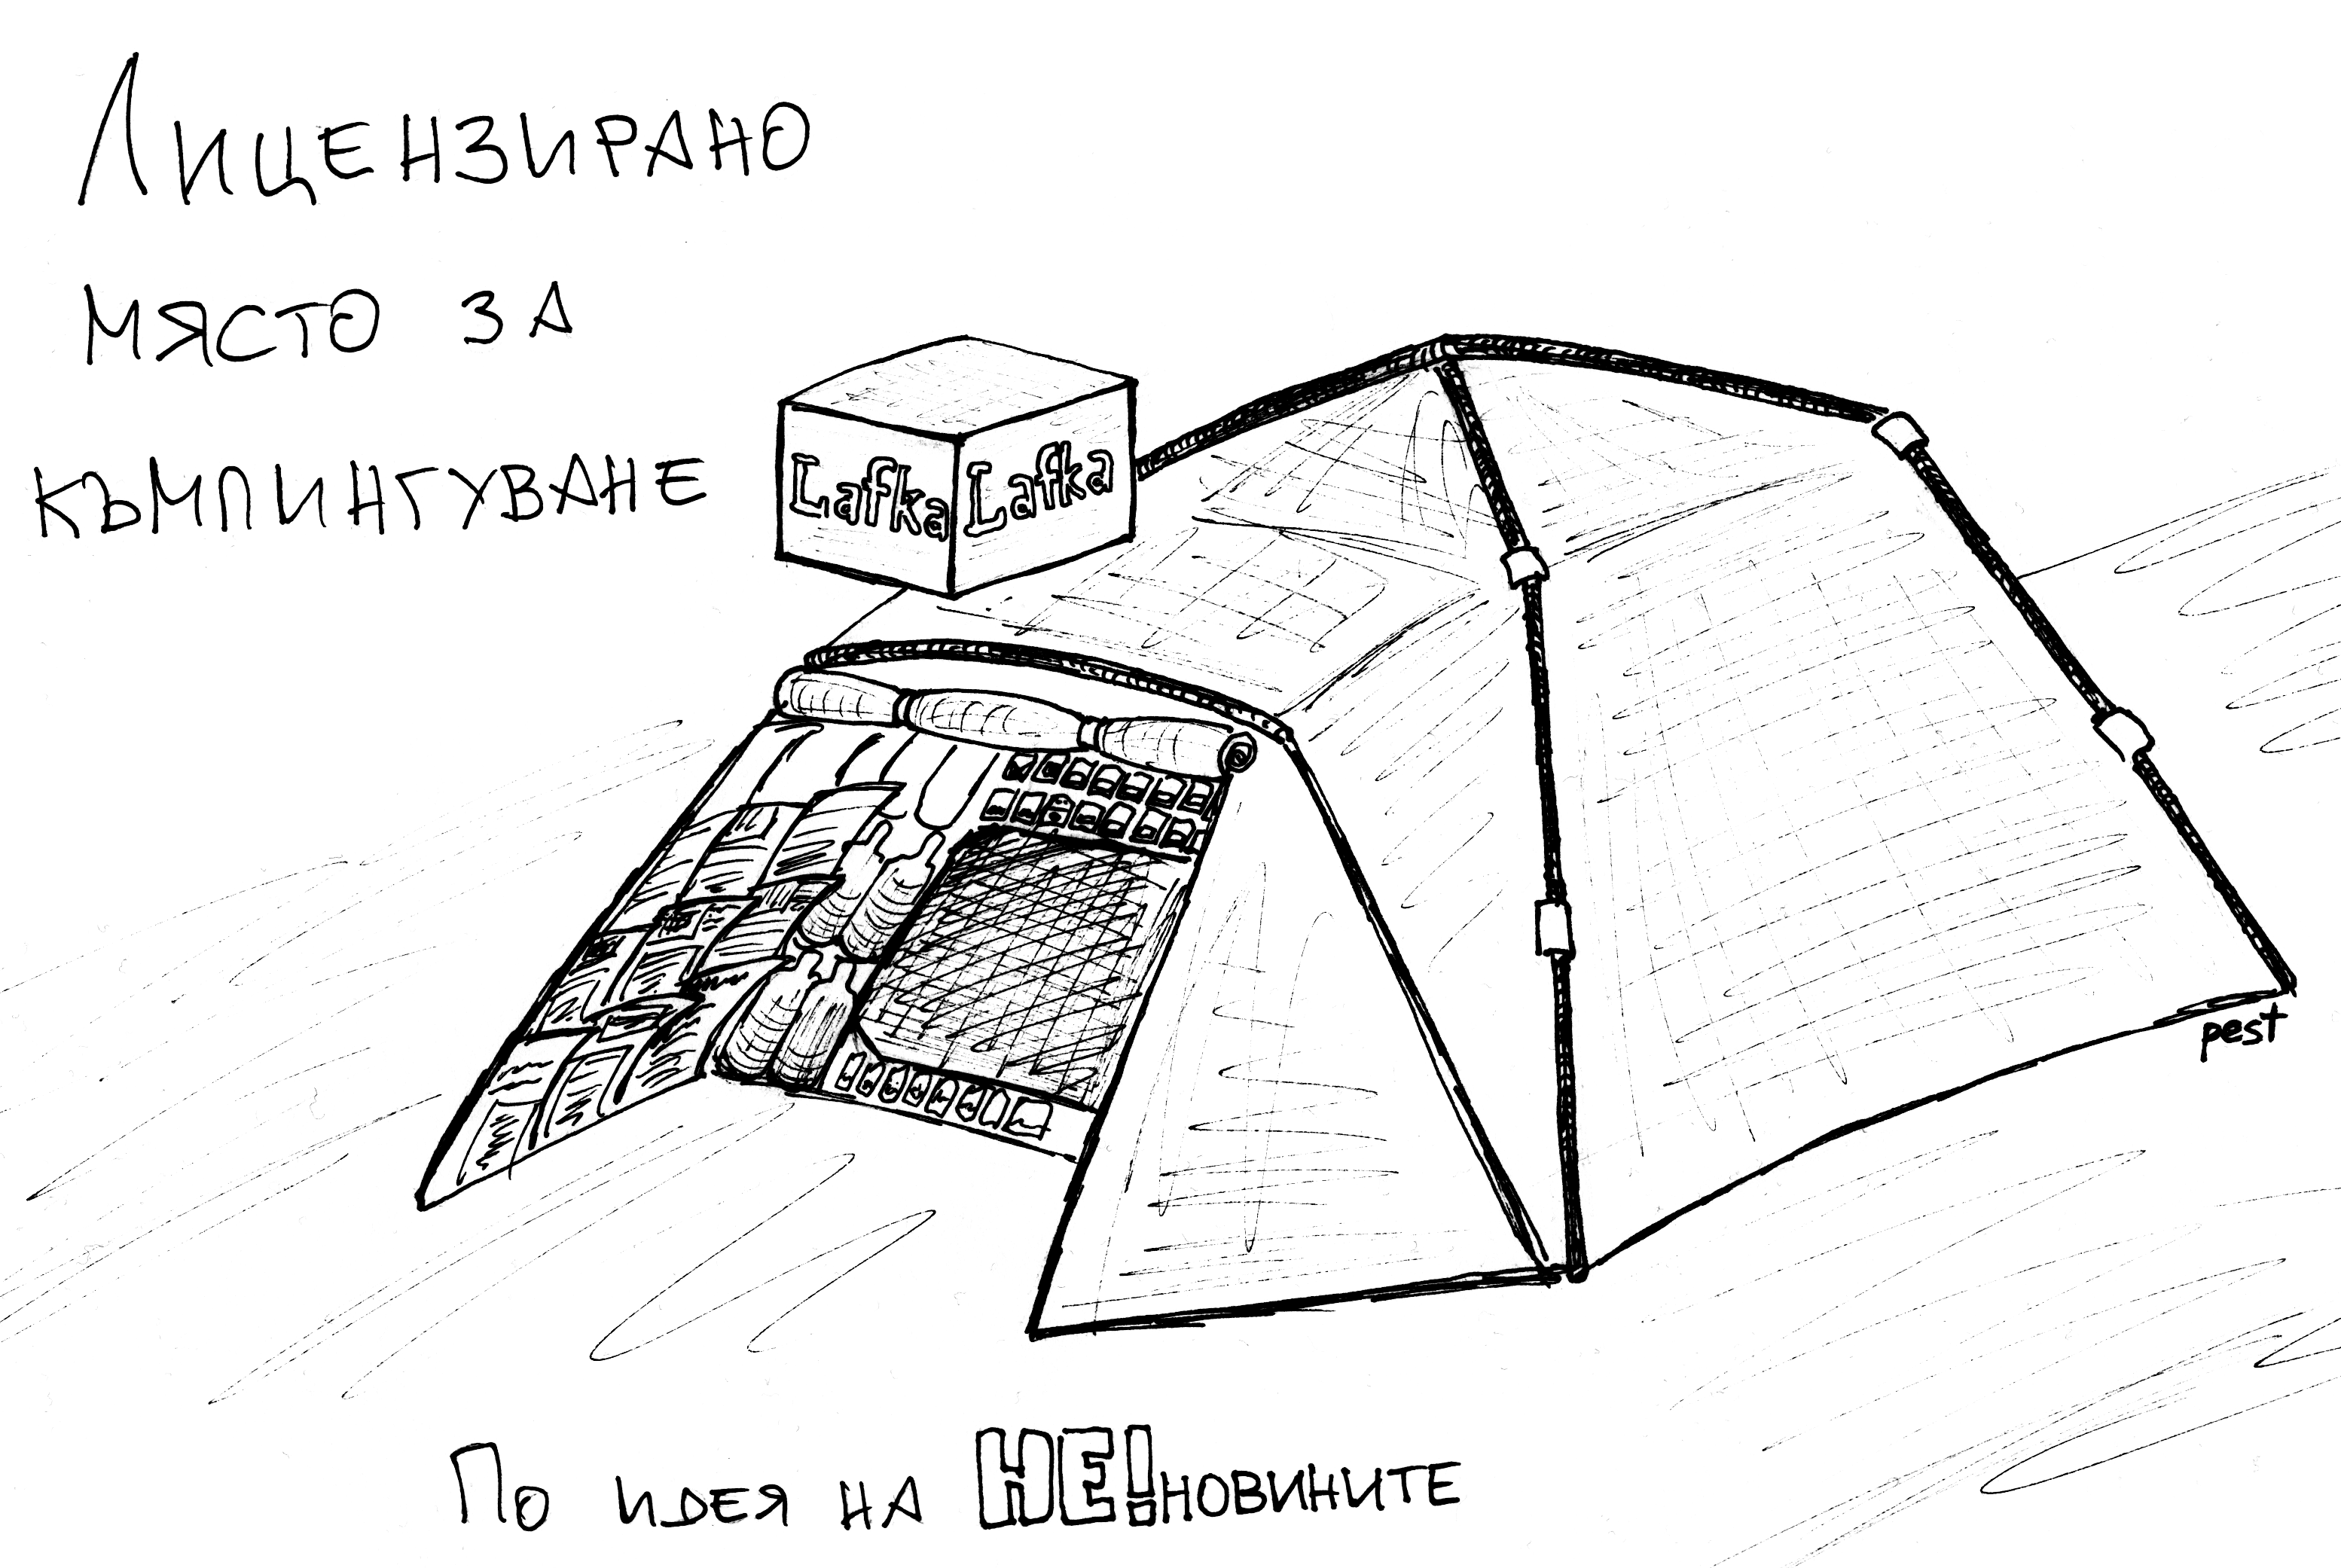 Лицензирано
място за
къмпингуване
Lafka Lafka
pest
По идея на НЕ!новините